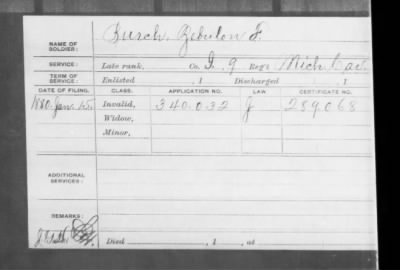 NAME OF
SOLDIER:
Burch, Zebulon F.
SERVICE: Late rank, Co. I, 9 Reg't Mich. Cav.
TERM OF
SERVICE: Enlisted , 1 Discharged , 1
DATE OF FILING. CLASS. APPLICATION NO. LAW CERTIFICATE NO.
1880. Jan. 15. Invalid, 340.032 J 289.068
Widow,
Minor,
ADDITIONAL
SERVICES:
REMARKS:
Died , 1 , at